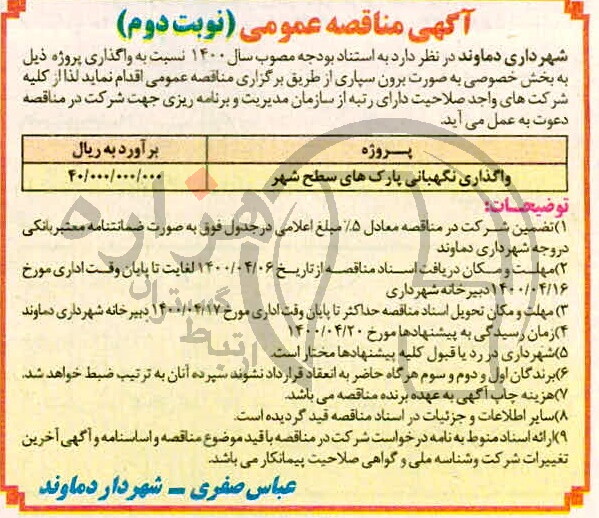 آگهی مناقصه عمومی (نوبت دوم)
شهرداری دماوند در نظر دارد به استناد بودجه مصوب سال ۱۴۰۰ نسبت به واگذاری پروژه ذیل
به بخش خصوصی به صورت برون سپاری از طریق برگزاری مناقصه عمومی اقدام نماید لذا از کلیه
شرکت های واجد صلاحیت دارای رتبه از سازمان مدیریت و برنامه ریزی جهت شرکت در مناقصه
دعوت به عمل می آید.
پــروژه برآورد به ریال
واگذاری نگهبانی پارک های سطح شهر ۴۰/۰۰۰/۰۰۰/۰۰۰
توضیحـات:
۱)تضمین شرکت در مناقصه معادل ۵٪ مبلغ اعلامی در جدول فوق به صورت ضمانتنامه معتبر بانکی
در وجه شهرداری دماوند
۲)مهلت و مکان دریافت اسناد مناقصه از تاریخ ۱۴۰۰/۰۴/۰۶ لغایت تا پایان وقت اداری مورخ
۱۴۰۰/۰۴/۱۶ دبیرخانه شهرداری
۳) مهلت و مکان تحویل اسناد مناقصه حداکثر تا پایان وقت اداری مورخ ۱۴۰۰/۰۴/۱۷ دبیرخانه شهرداری دماوند
۴)زمان رسیدگی به پیشنهادها مورخ ۱۴۰۰/۰۴/۲۰
۵)شهرداری در رد یا قبول کلیه پیشنهادها مختار است.
۶)برندگان اول و دوم و سوم هرگاه حاضر به انعقاد قرارداد نشوند سپرده آنان به ترتیب ضبط خواهد شد.
۷)هزینه چاپ آگهی به عهده برنده مناقصه می باشد.
۸)سایر اطلاعات و جزئیات در اسناد مناقصه قید گردیده است.
۹)ارائه اسناد منوط به نامه درخواست شرکت در مناقصه با قید موضوع مناقصه و اساسنامه و آگهی آخرین
تغییرات شرکت وشناسه ملی و گواهی صلاحیت پیمانکار می باشد.
عباس صفری - شهردار دماوند
هزاره